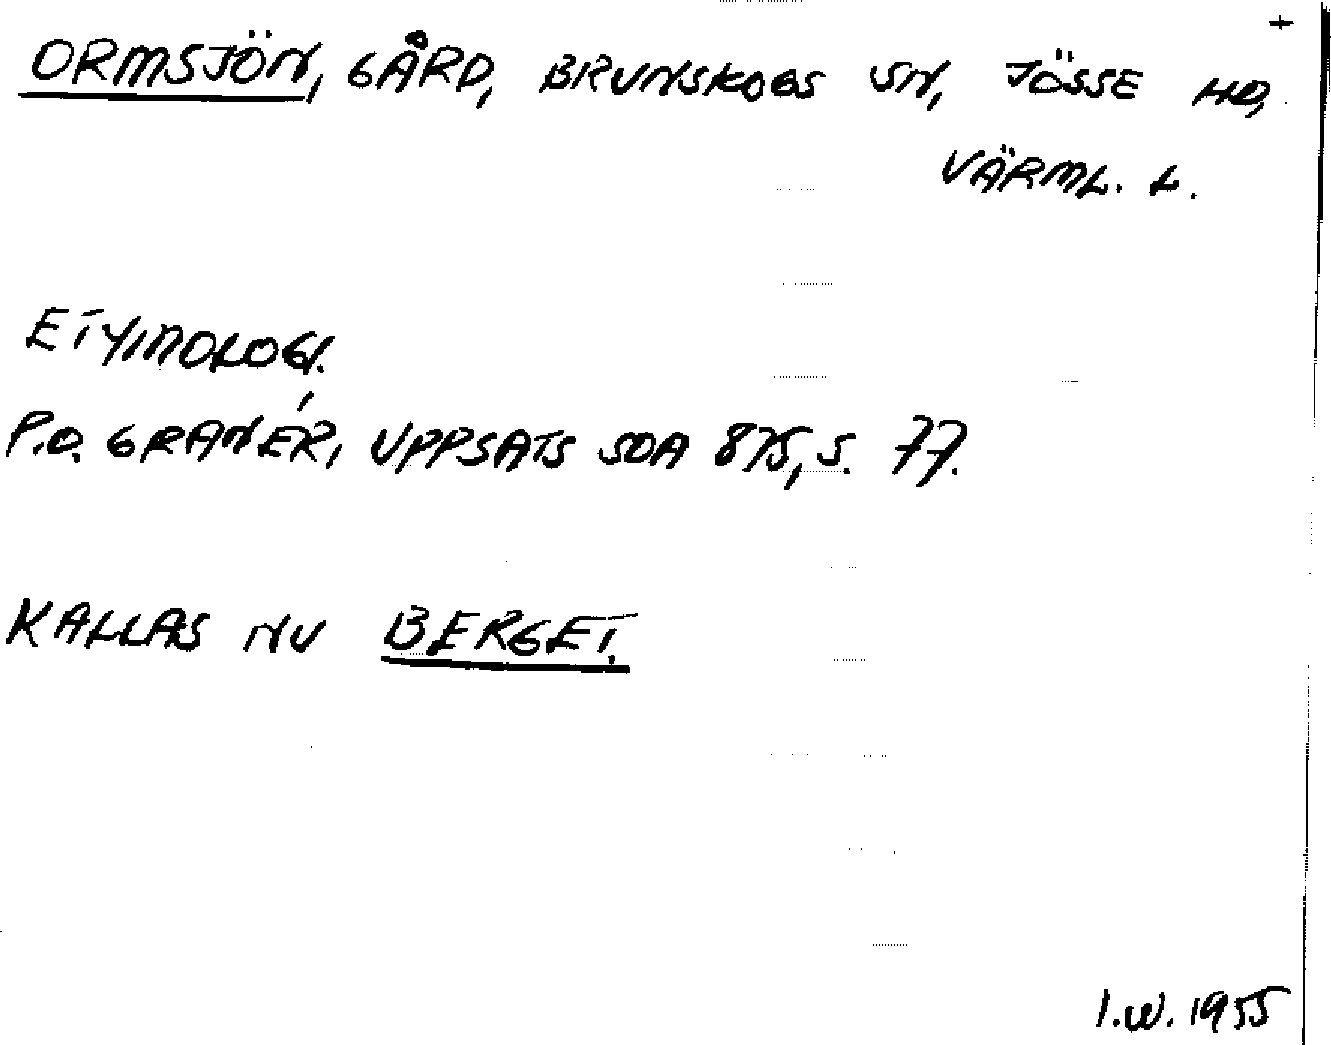 +
ORMSJÖN, GÅRD, BRUNSKOGS SN, JÖSSE HD,
VÄRML. L.
ETYMOLOGI.
P.O. GRANÉR, UPPSATS SOA 875, S. 77.
KALLAS NU BERGET.
I.W. 1955